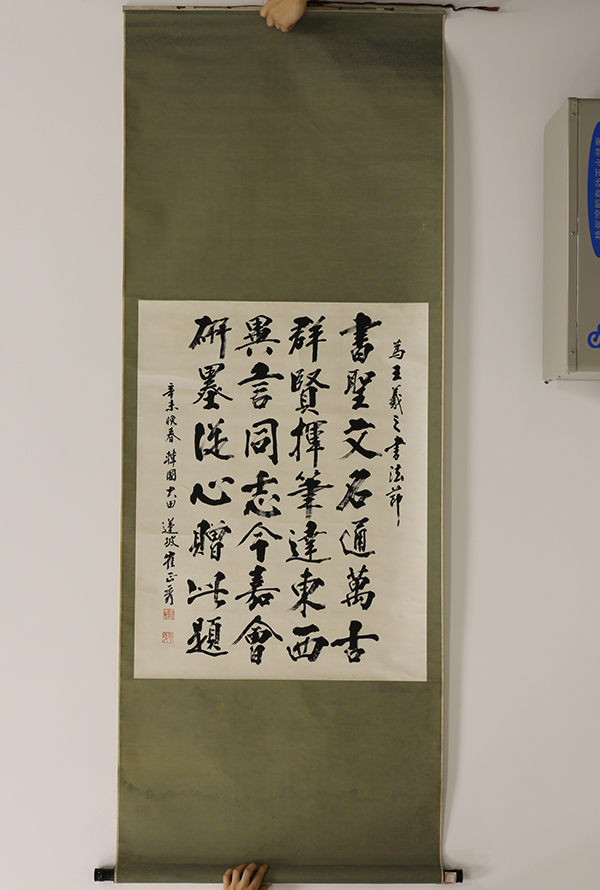 為王羲之書法節
書聖文名通萬古
群賢揮筆達東西
異言同志今嘉會
研墨從心贈此題
辛未暮春韓國大田蓮坡崔正秀